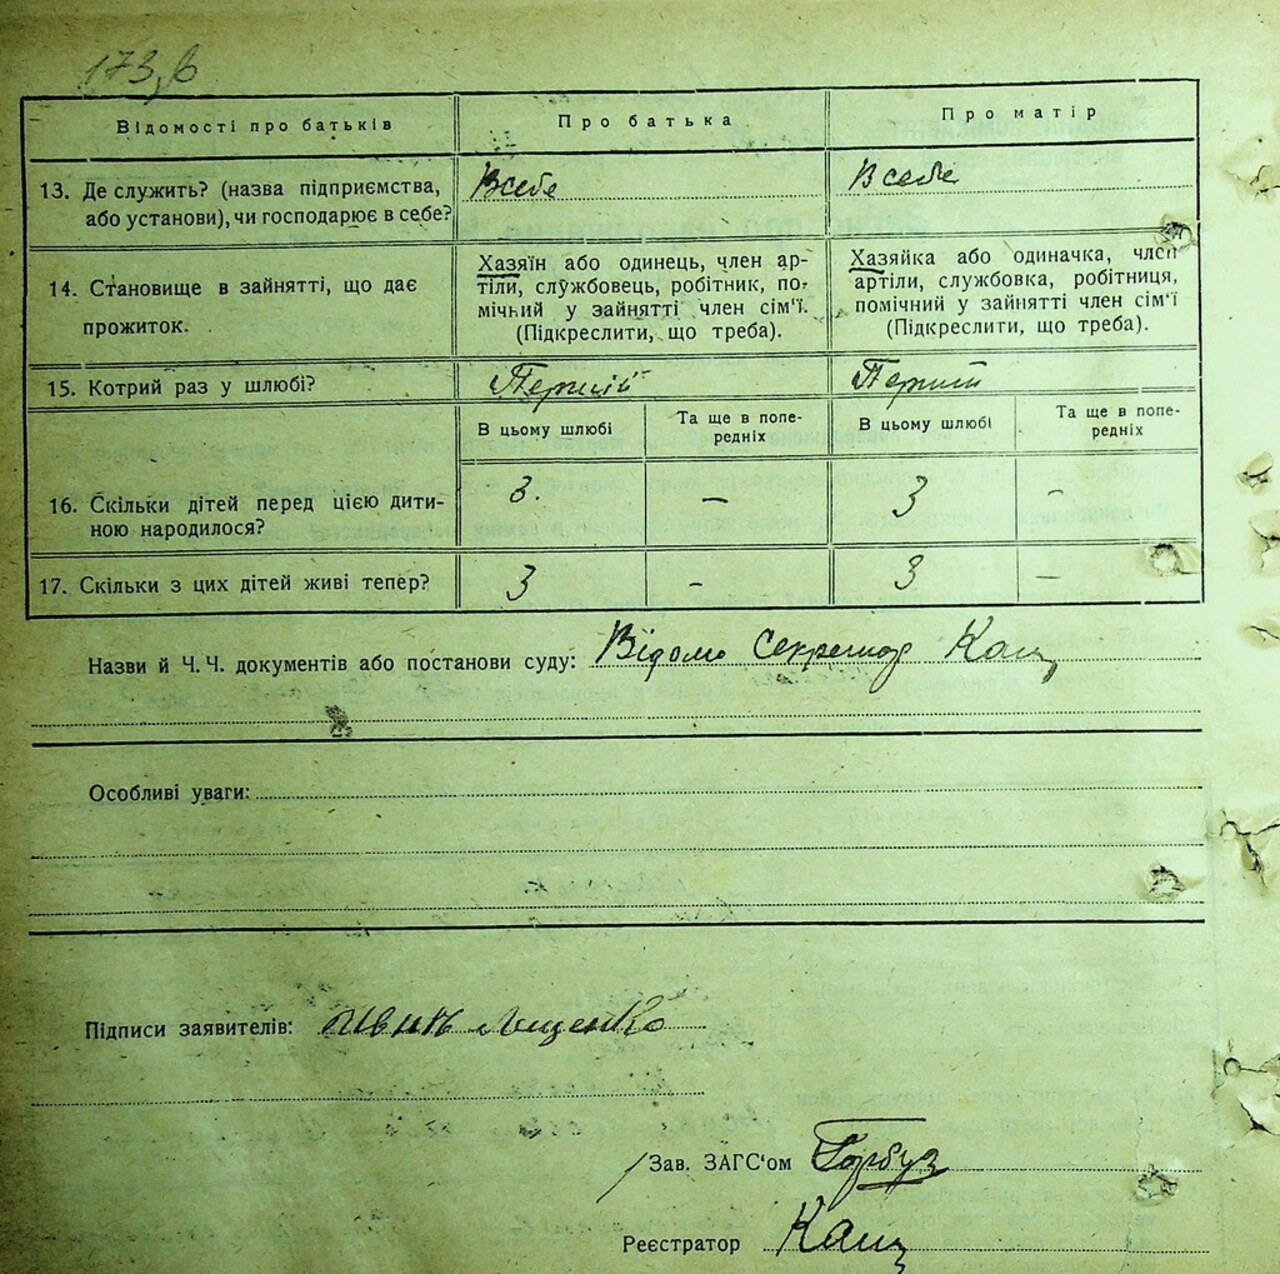 173, в
Відомості про батьків
Про батька
Про матір
13. Де служить? (назва підприємства,
або установи), чи господарює в себе?
В себе
В себе
14. Становище в зайнятті, що дає
прожиток.
Хазяїн або одинець, член ар-
тіли, службовець, робітник, по-
мічний у зайнятті член сім'ї.
(Підкреслити, що треба).
Хазяйка або одиначка, член
артіли, службовка, робітниця,
помічний у зайнятті член сім'ї
(Підкреслити, що треба).
15. Котрий раз у шлюбі?
Перший
Перший
В цьому шлюбі
Та ще в попе-
редніх
В цьому шлюбі
Та ще в попе-
редніх
16. Скільки дітей перед цією дити-
ною народилося?
3.
—
3
—
17. Скільки з цих дітей живі тепер?
3
-
3
—
Назви й Ч.Ч. документів або постанови суду: Відомо Секретар
Особливі уваги:
Підписи заявителів: Іщенко
Зав. ЗАГС'ом Горбуз
Реєстратор